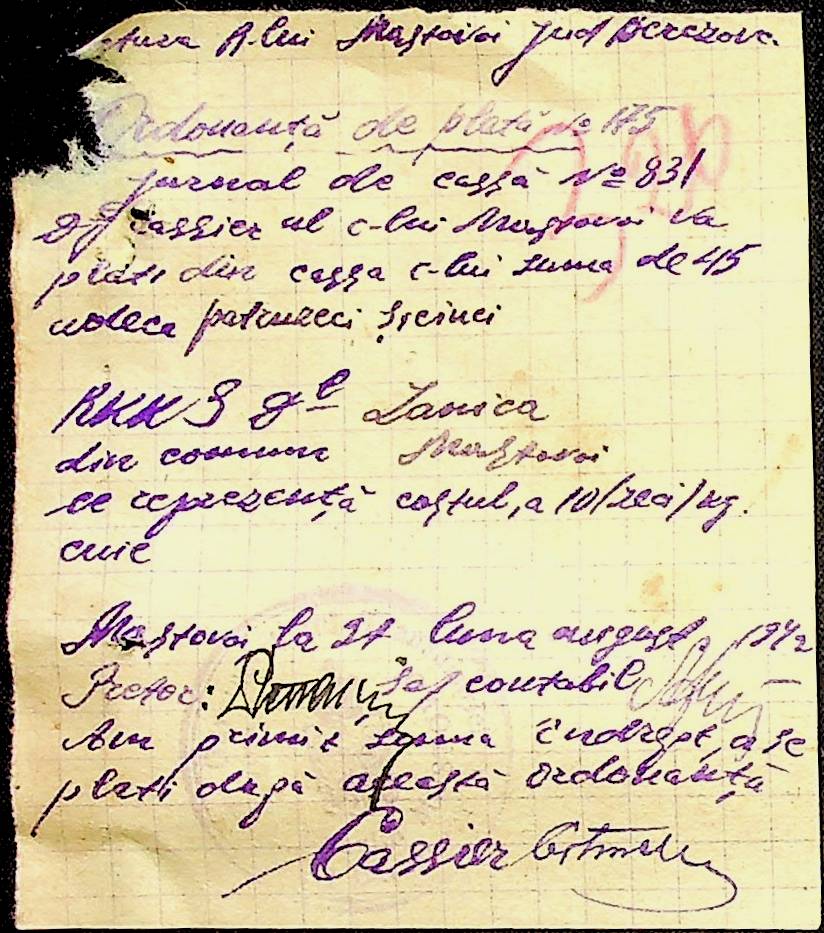 tura R-lui Mostovoi Jud Berezovca
Ordonanță de plată No 175
Jurnal de cassă No 831
Dl cassier al c-lui Mostovoi va
plati din cassa c-lui suma de 45
adeca patruzeci și cinci
RKKS Dl Zanica
din comuna Mostovoi
ce reprezentă costul, a 10/zeci/kg.
cuie
Mostovoi la 27 luna august 1942
Pretor: Șef contabil
Am primit suma îndrept, a se
plati după această Ordonanță
Cassier